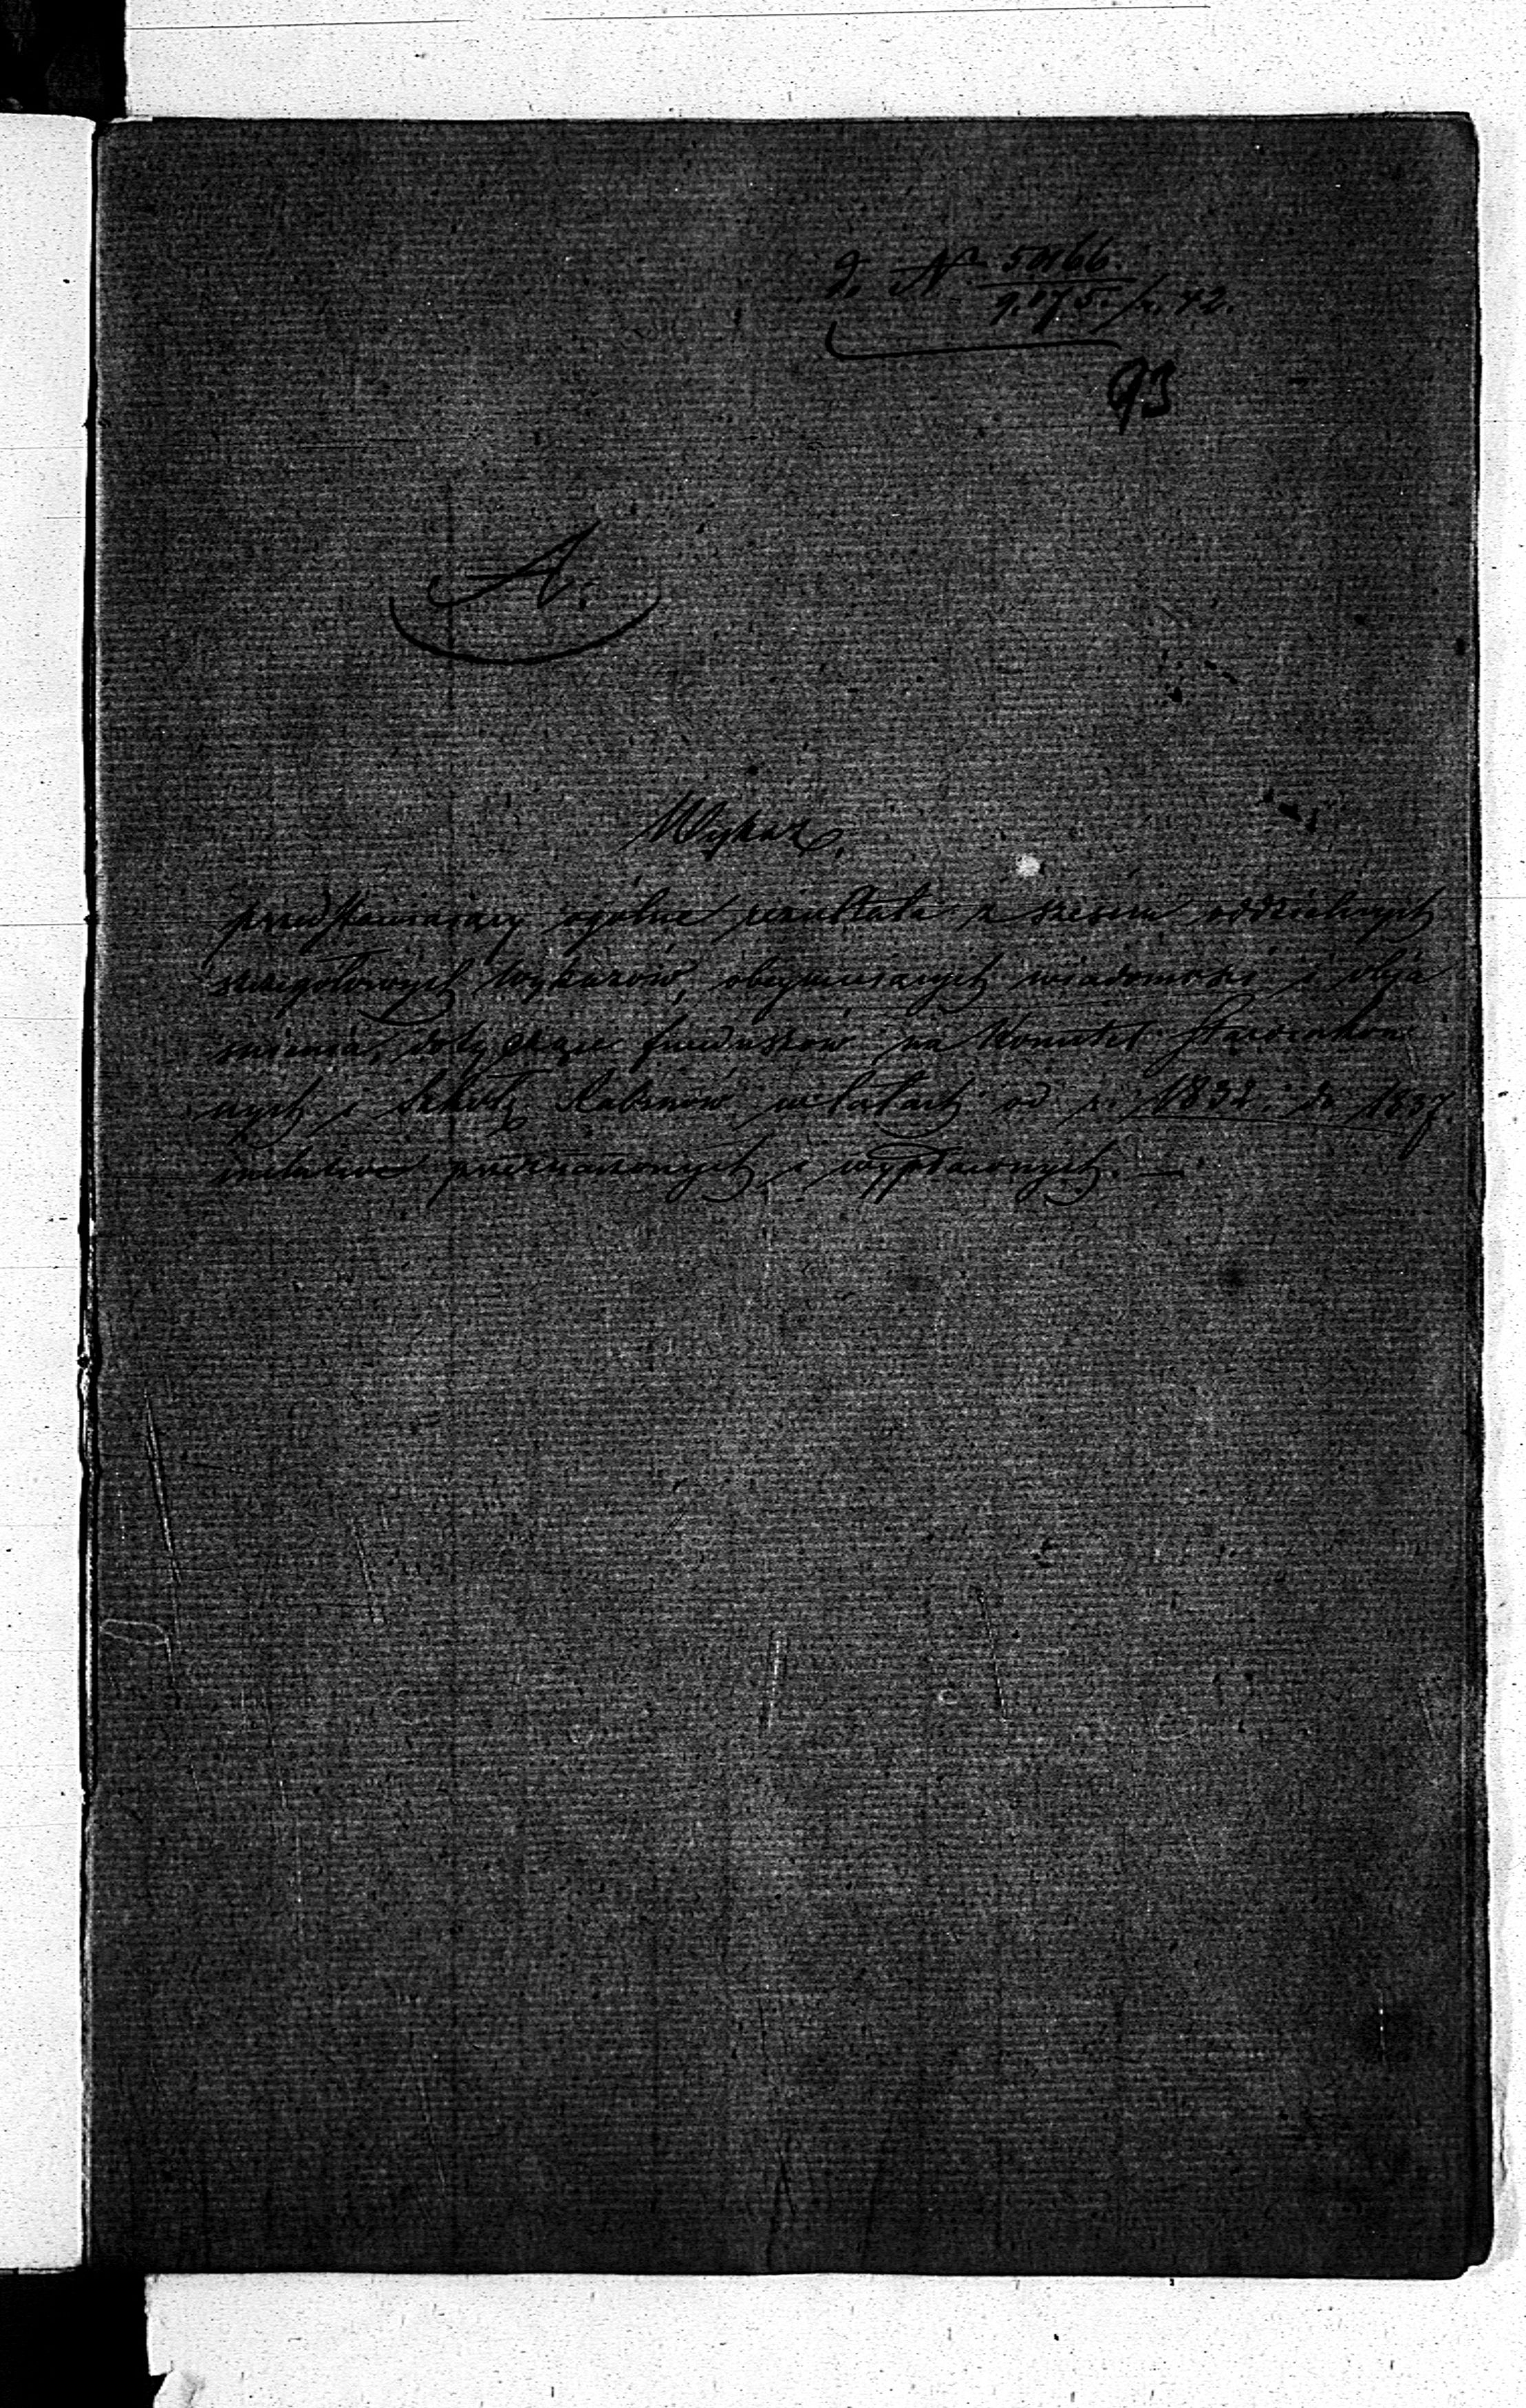 N 54166.
73
A.
Wykaz,
przedstawiaiący ogólne rezultata z sześciu oddzielnych
szczegółowych Wykazów, obeymuiących wiadomości i obja
śnienia, dotyczące funduszów na Komitet Starozakon
nych i Szkołę Rabinów w latach od r. 1832. do 1837
inclusive przeznaczonych i wypłaconych. —